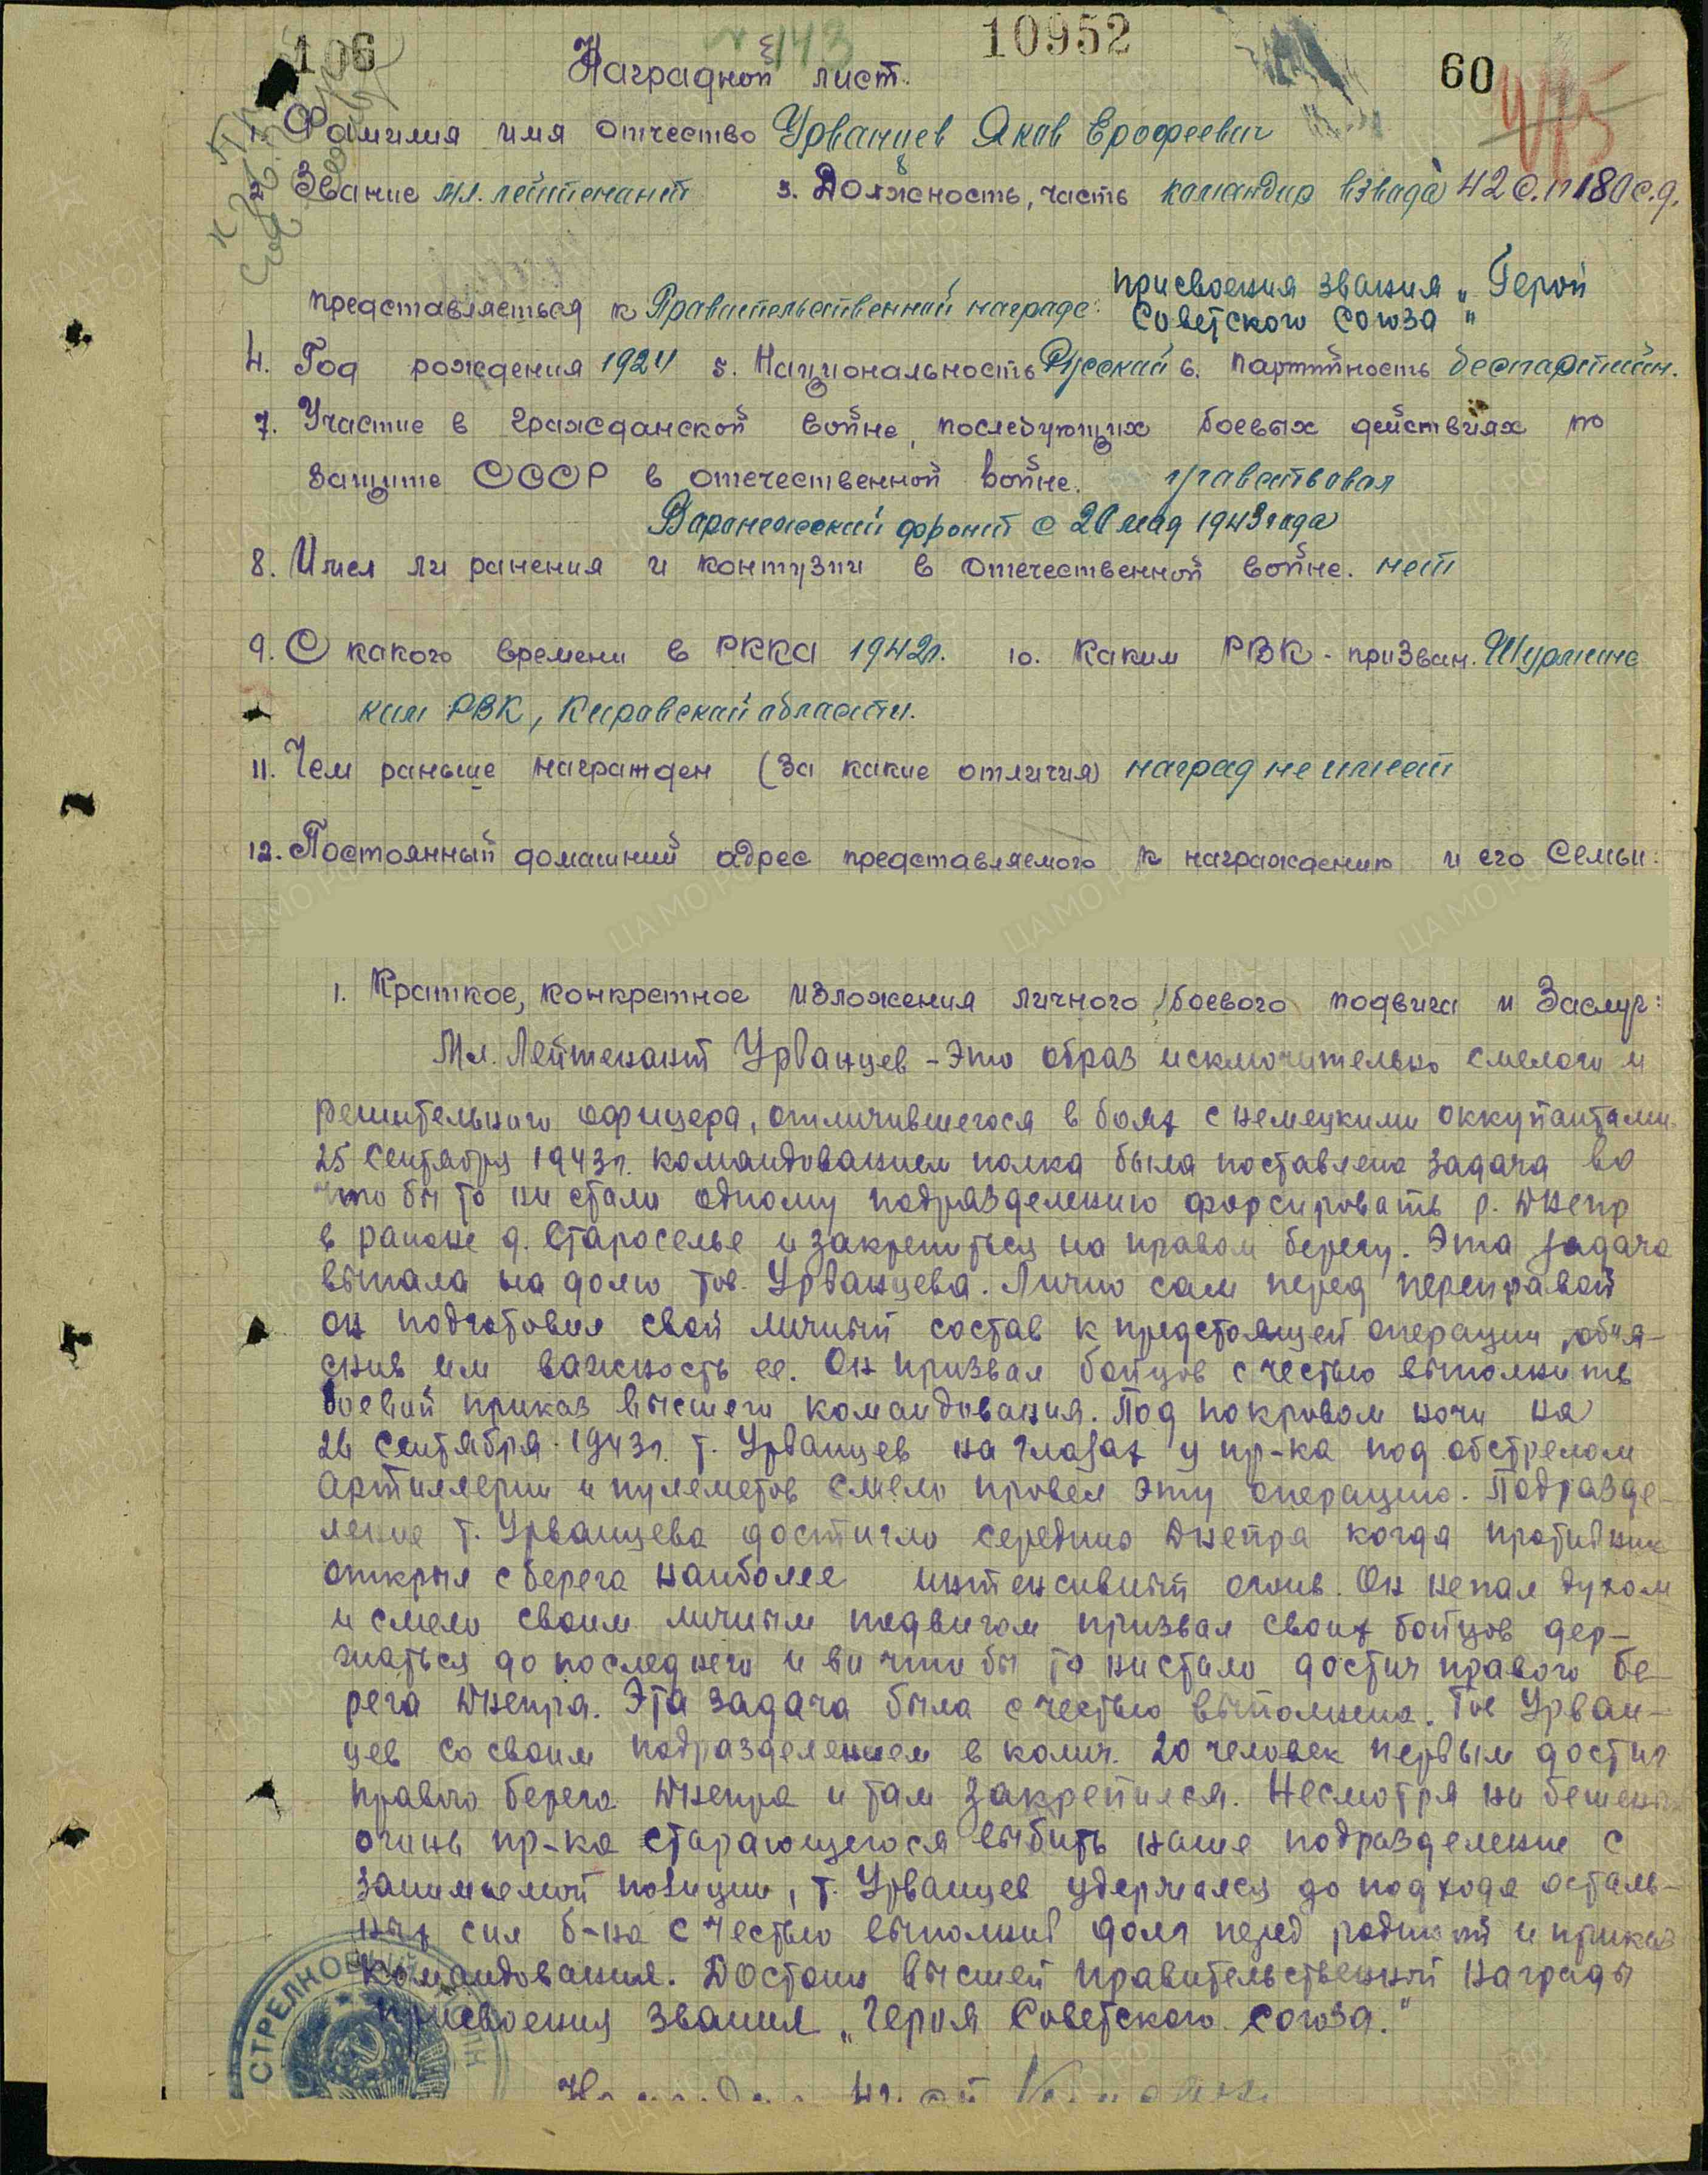 106
№143
10952
60
Наградной лист.
1. Фамилия имя отчество Урванцев Яков Ерофеевич
2. Звание мл. лейтенант 3. Должность, часть командир взвода 42 с.п 180 с.д.
представляеться к Правительственной награде: присвоения звания „Герой
Советского Союза"
4. Год рождения 1924 5. Национальность Русский 6. партийность беспартийн.
7. Участие в гражданской войне, последующих боевых действиях по
защите СССР в отечественной войне. участвовал
Воронежский фронт с 20 мая 1943 года
8. Имел ли ранения и контузии в отечественной войне. нет
9. С какого времени в РККА 1942г. 10. Каким РВК - призван. Шурминс
ким РВК, Кировской области.
11. Чем раньше награжден (за какие отличия) наград не имеет
12. Постоянный домашний адрес представляемого к награждению и его семьи:
1. Краткое, конкретное изложения личного боевого подвига и заслуг:
Мл. Лейтенант Урванцев - это образ исключительно смелого и
решительного офицера, отличившегося в боях с немецкими оккупантами.
25 Сентября 1943г. командованием полка была поставлена задача во
что бы то ни стало одному подразделению форсировать р. Днепр
в районе д. Староселье и закрепиться на правом берегу. Эта задача
выпала на долю тов. Урванцева. Лично сам перед переправой
он подготовил свой личный состав к предстоящей операции, объя-
снив им важность ее. Он призвал бойцов с честью выполнить
боевой приказ высшего командования. Под покровом ночи на
26 Сентября 1943г. т. Урванцев на глазах у пр-ка под обстрелом
артиллерии и пулеметов смело провел эту операцию. Подразде-
ление т. Урванцева достигло середины Днепра когда противник
открыл с берега наиболее интенсивный огонь. Он не пал духом
и смело своим личным подвигом призвал своих бойцов дер-
жаться до последнего и во что бы то ни стало достич правого бе-
рега Днепра. Эта задача была с честью выполнена. Тов Урван-
цев со своим подразделением в колич. 20 человек первым достиг
правого берега Днепра и там закрепился. Несмотря на бешены
огонь пр-ка старающегося выбить наше подразделение с
занимаемой позиции, т. Урванцев удержался до подхода осталь-
ных сил б-на с честью выполнив долг перед родиной и приказ
командования. Достоин высшей правительственной награды
присвоения звания „Героя Советского Союза."
СТРЕЛКОВЫЙ